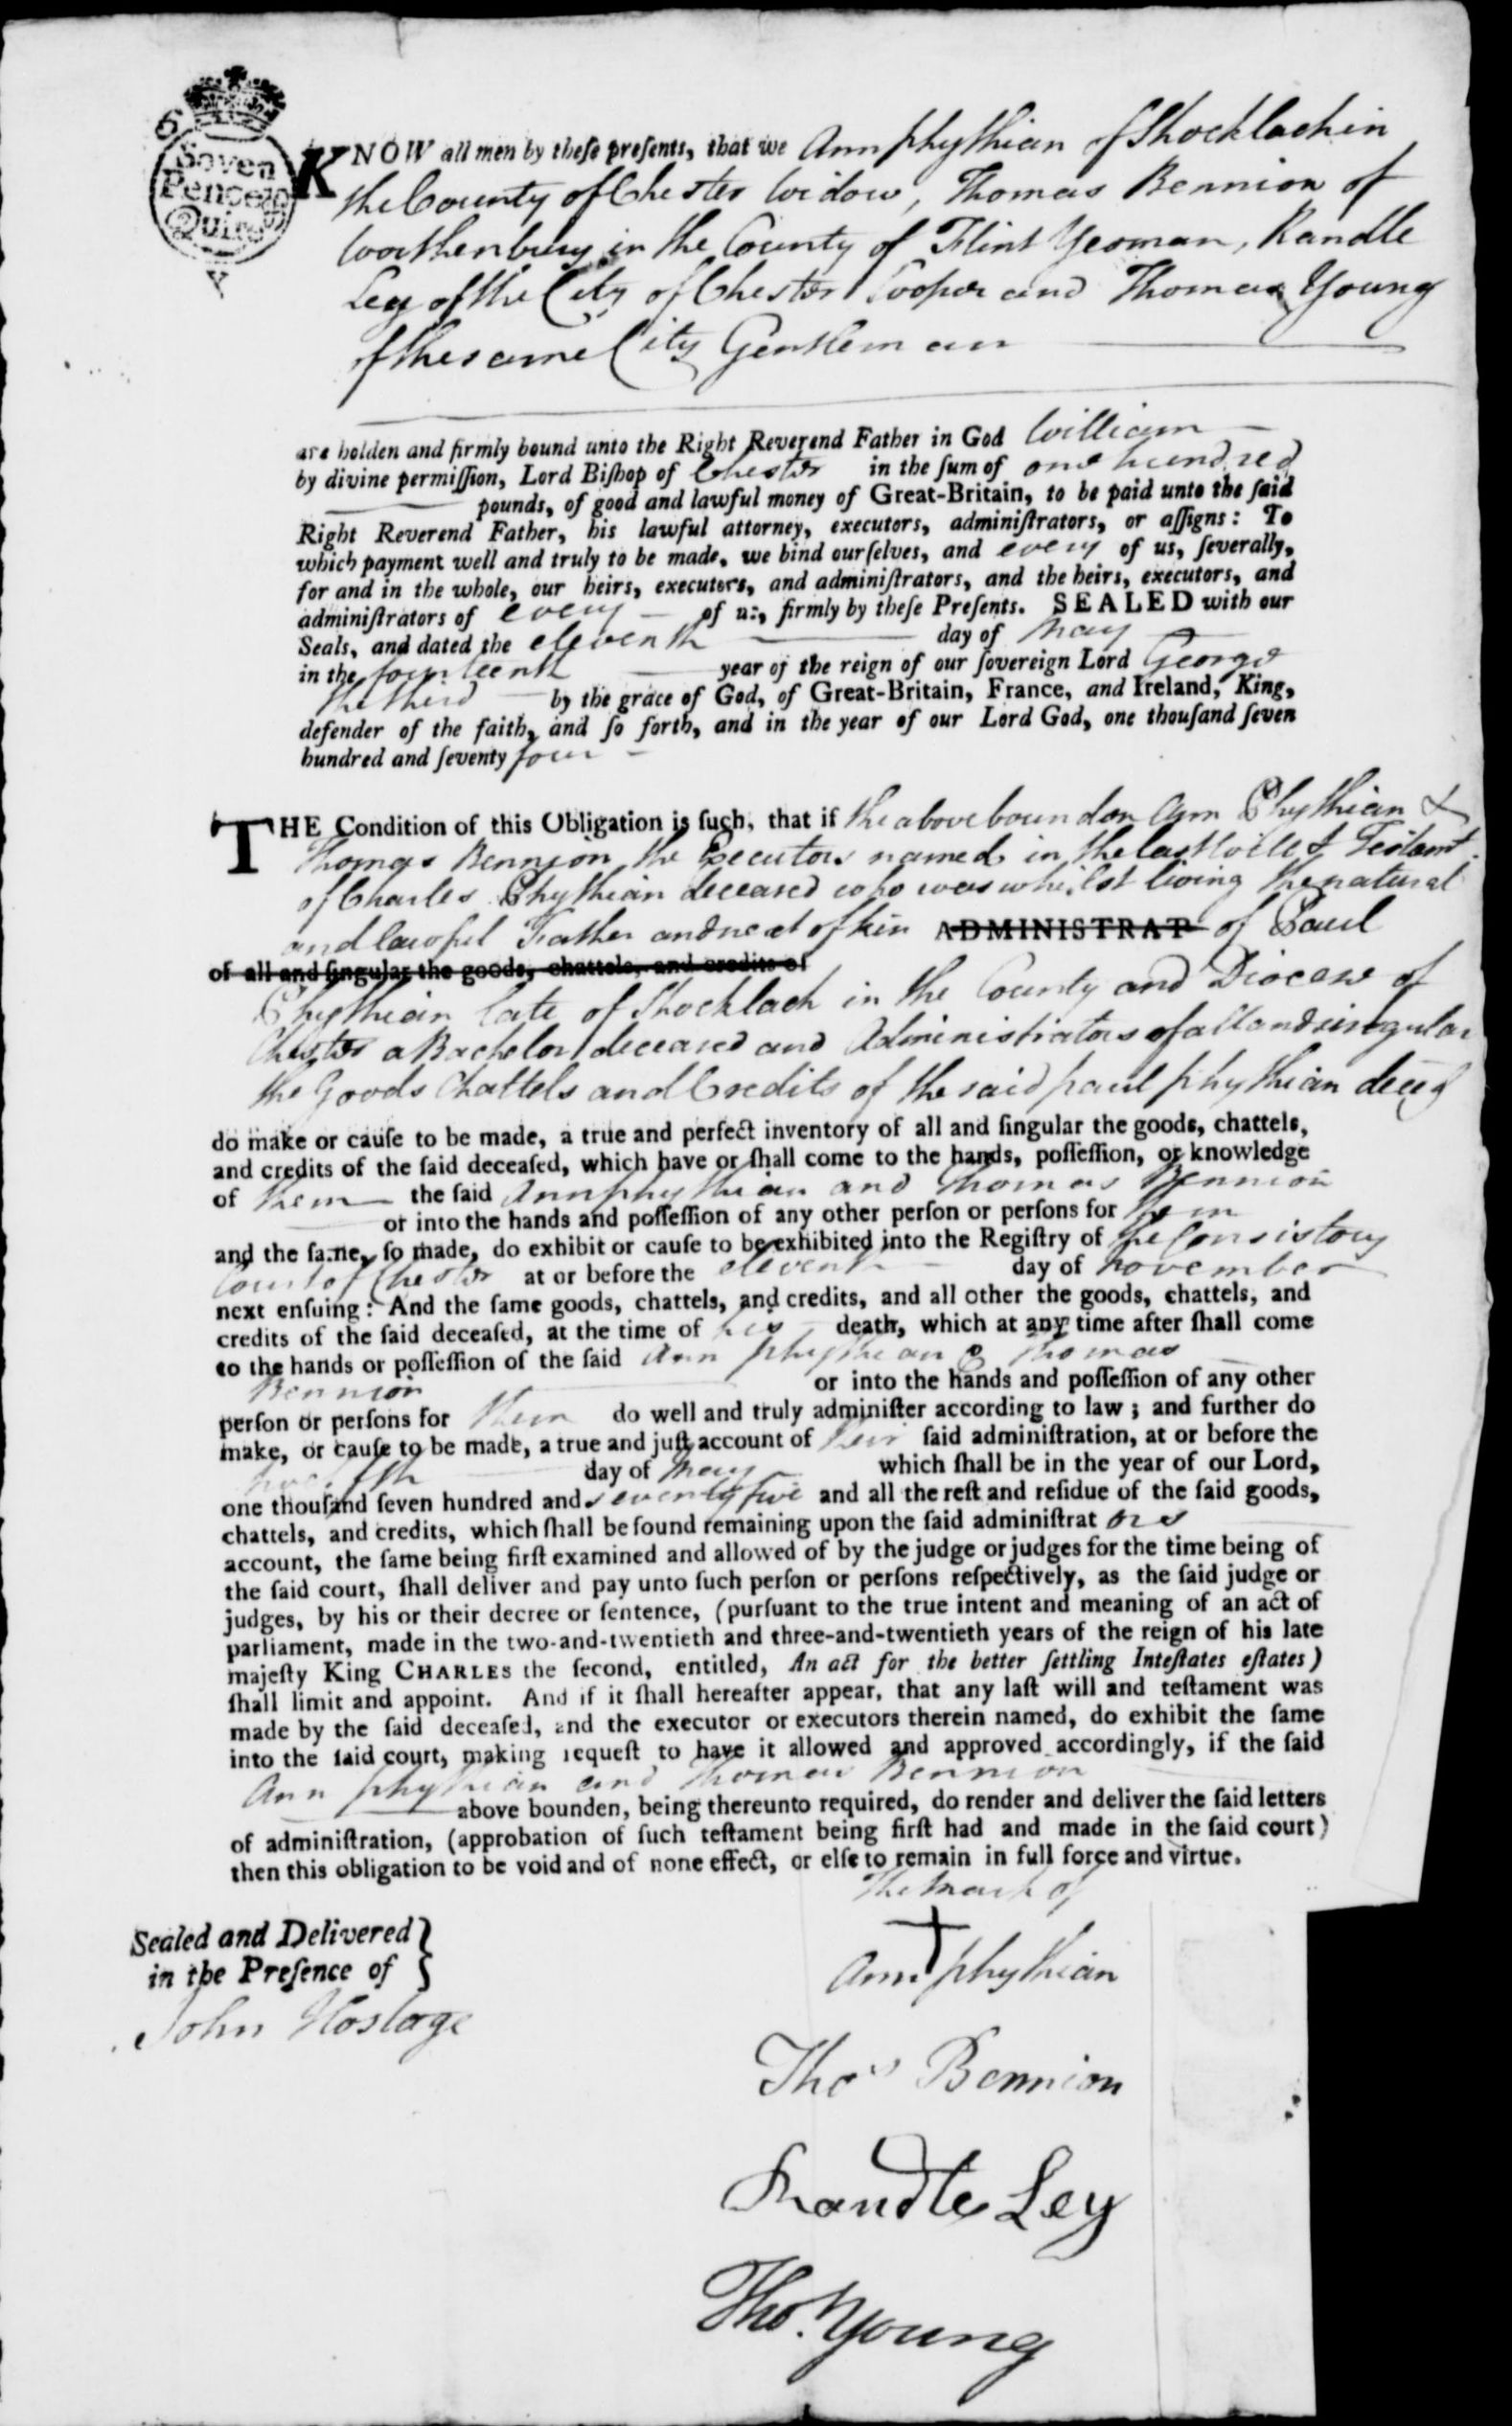 6
Seven
Pence pr
Quire
KNOW all men by theſe preſents, that we Ann phythian of Shocklach in
the County of Chester Widow, Thomas Bennion of
Worthenbury in the County of Flint Yeoman, Randle
Ley of the City of Chester Cooper and Thomas Young
of the same City Gentleman
are holden and firmly bound unto the Right Reverend Father in God William
by divine permiſſion, Lord Biſhop of Chester in the ſum of one hundred
pounds, of good and lawful money of Great-Britain, to be paid unto the ſaid
Right Reverend Father, his lawful attorney, executors, adminiſtrators, or aſſigns: To
which payment well and truly to be made, we bind ourſelves, and every of us, ſeverally,
for and in the whole, our heirs, executors, and adminiſtrators, and the heirs, executors, and
adminiſtrators of every of us, firmly by theſe Preſents. SEALED with our
Seals, and dated the eleventh day of May
in the fourteenth year of the reign of our ſovereign Lord George
the third by the grace of God, of Great-Britain, France, and Ireland, King,
defender of the faith, and ſo forth, and in the year of our Lord God, one thouſand ſeven
hundred and ſeventy four
THE Condition of this Obligation is ſuch, that if the above bounden Ann Phythian &
Thomas Bennion the Executors named in the last Will & Testamt.
of Charles Phythian deceased who was whilst living the natural
and lawful Father and next of kin ADMINISTRAT of Paul
of all and ſingular the goods, chattels, and credits of
Phythian late of Shocklach in the County and Diocese of
Chester a Bachelor deceased and Administrators of all and singular
the Goods Chattels and Credits of the said paul phythian deced
do make or cauſe to be made, a true and perfect inventory of all and ſingular the goods, chattels,
and credits of the ſaid deceaſed, which have or ſhall come to the hands, poſſeſſion, or knowledge
of them the ſaid Ann phythian and Thomas Bennion
or into the hands and poſſeſſion of any other perſon or perſons for them
and the ſame, ſo made, do exhibit or cauſe to be exhibited into the Regiſtry of the Consistory
Court of Chester at or before the eleventh day of November
next enſuing: And the ſame goods, chattels, and credits, and all other the goods, chattels, and
credits of the ſaid deceaſed, at the time of his death, which at any time after ſhall come
to the hands or poſſeſſion of the ſaid Ann phythian & Thomas
Bennion or into the hands and poſſeſſion of any other
perſon or perſons for them do well and truly adminiſter according to law; and further do
make, or cauſe to be made, a true and juſt account of their ſaid adminiſtration, at or before the
twelfth day of May which ſhall be in the year of our Lord,
one thouſand ſeven hundred and seventy five and all the reſt and reſidue of the ſaid goods,
chattels, and credits, which ſhall be found remaining upon the ſaid adminiſtrat ors
account, the ſame being firſt examined and allowed of by the judge or judges for the time being of
the ſaid court, ſhall deliver and pay unto ſuch perſon or perſons reſpectively, as the ſaid judge or
judges, by his or their decree or ſentence, (purſuant to the true intent and meaning of an act of
parliament, made in the two-and-twentieth and three-and-twentieth years of the reign of his late
majeſty King CHARLES the ſecond, entitled, An act for the better ſettling Inteſtates eſtates)
ſhall limit and appoint. And if it ſhall hereafter appear, that any laſt will and teſtament was
made by the ſaid deceaſed, and the executor or executors therein named, do exhibit the ſame
into the ſaid court, making requeſt to have it allowed and approved accordingly, if the ſaid
Ann phythian and Thomas Bennion
above bounden, being thereunto required, do render and deliver the ſaid letters
of adminiſtration, (approbation of ſuch teſtament being firſt had and made in the ſaid court)
then this obligation to be void and of none effect, or elſe to remain in full force and virtue.
The mark of
Ann phythian
Sealed and Delivered
in the Preſence of }
John Hostage
Thos Bennion
Randle Ley
Tho. Young